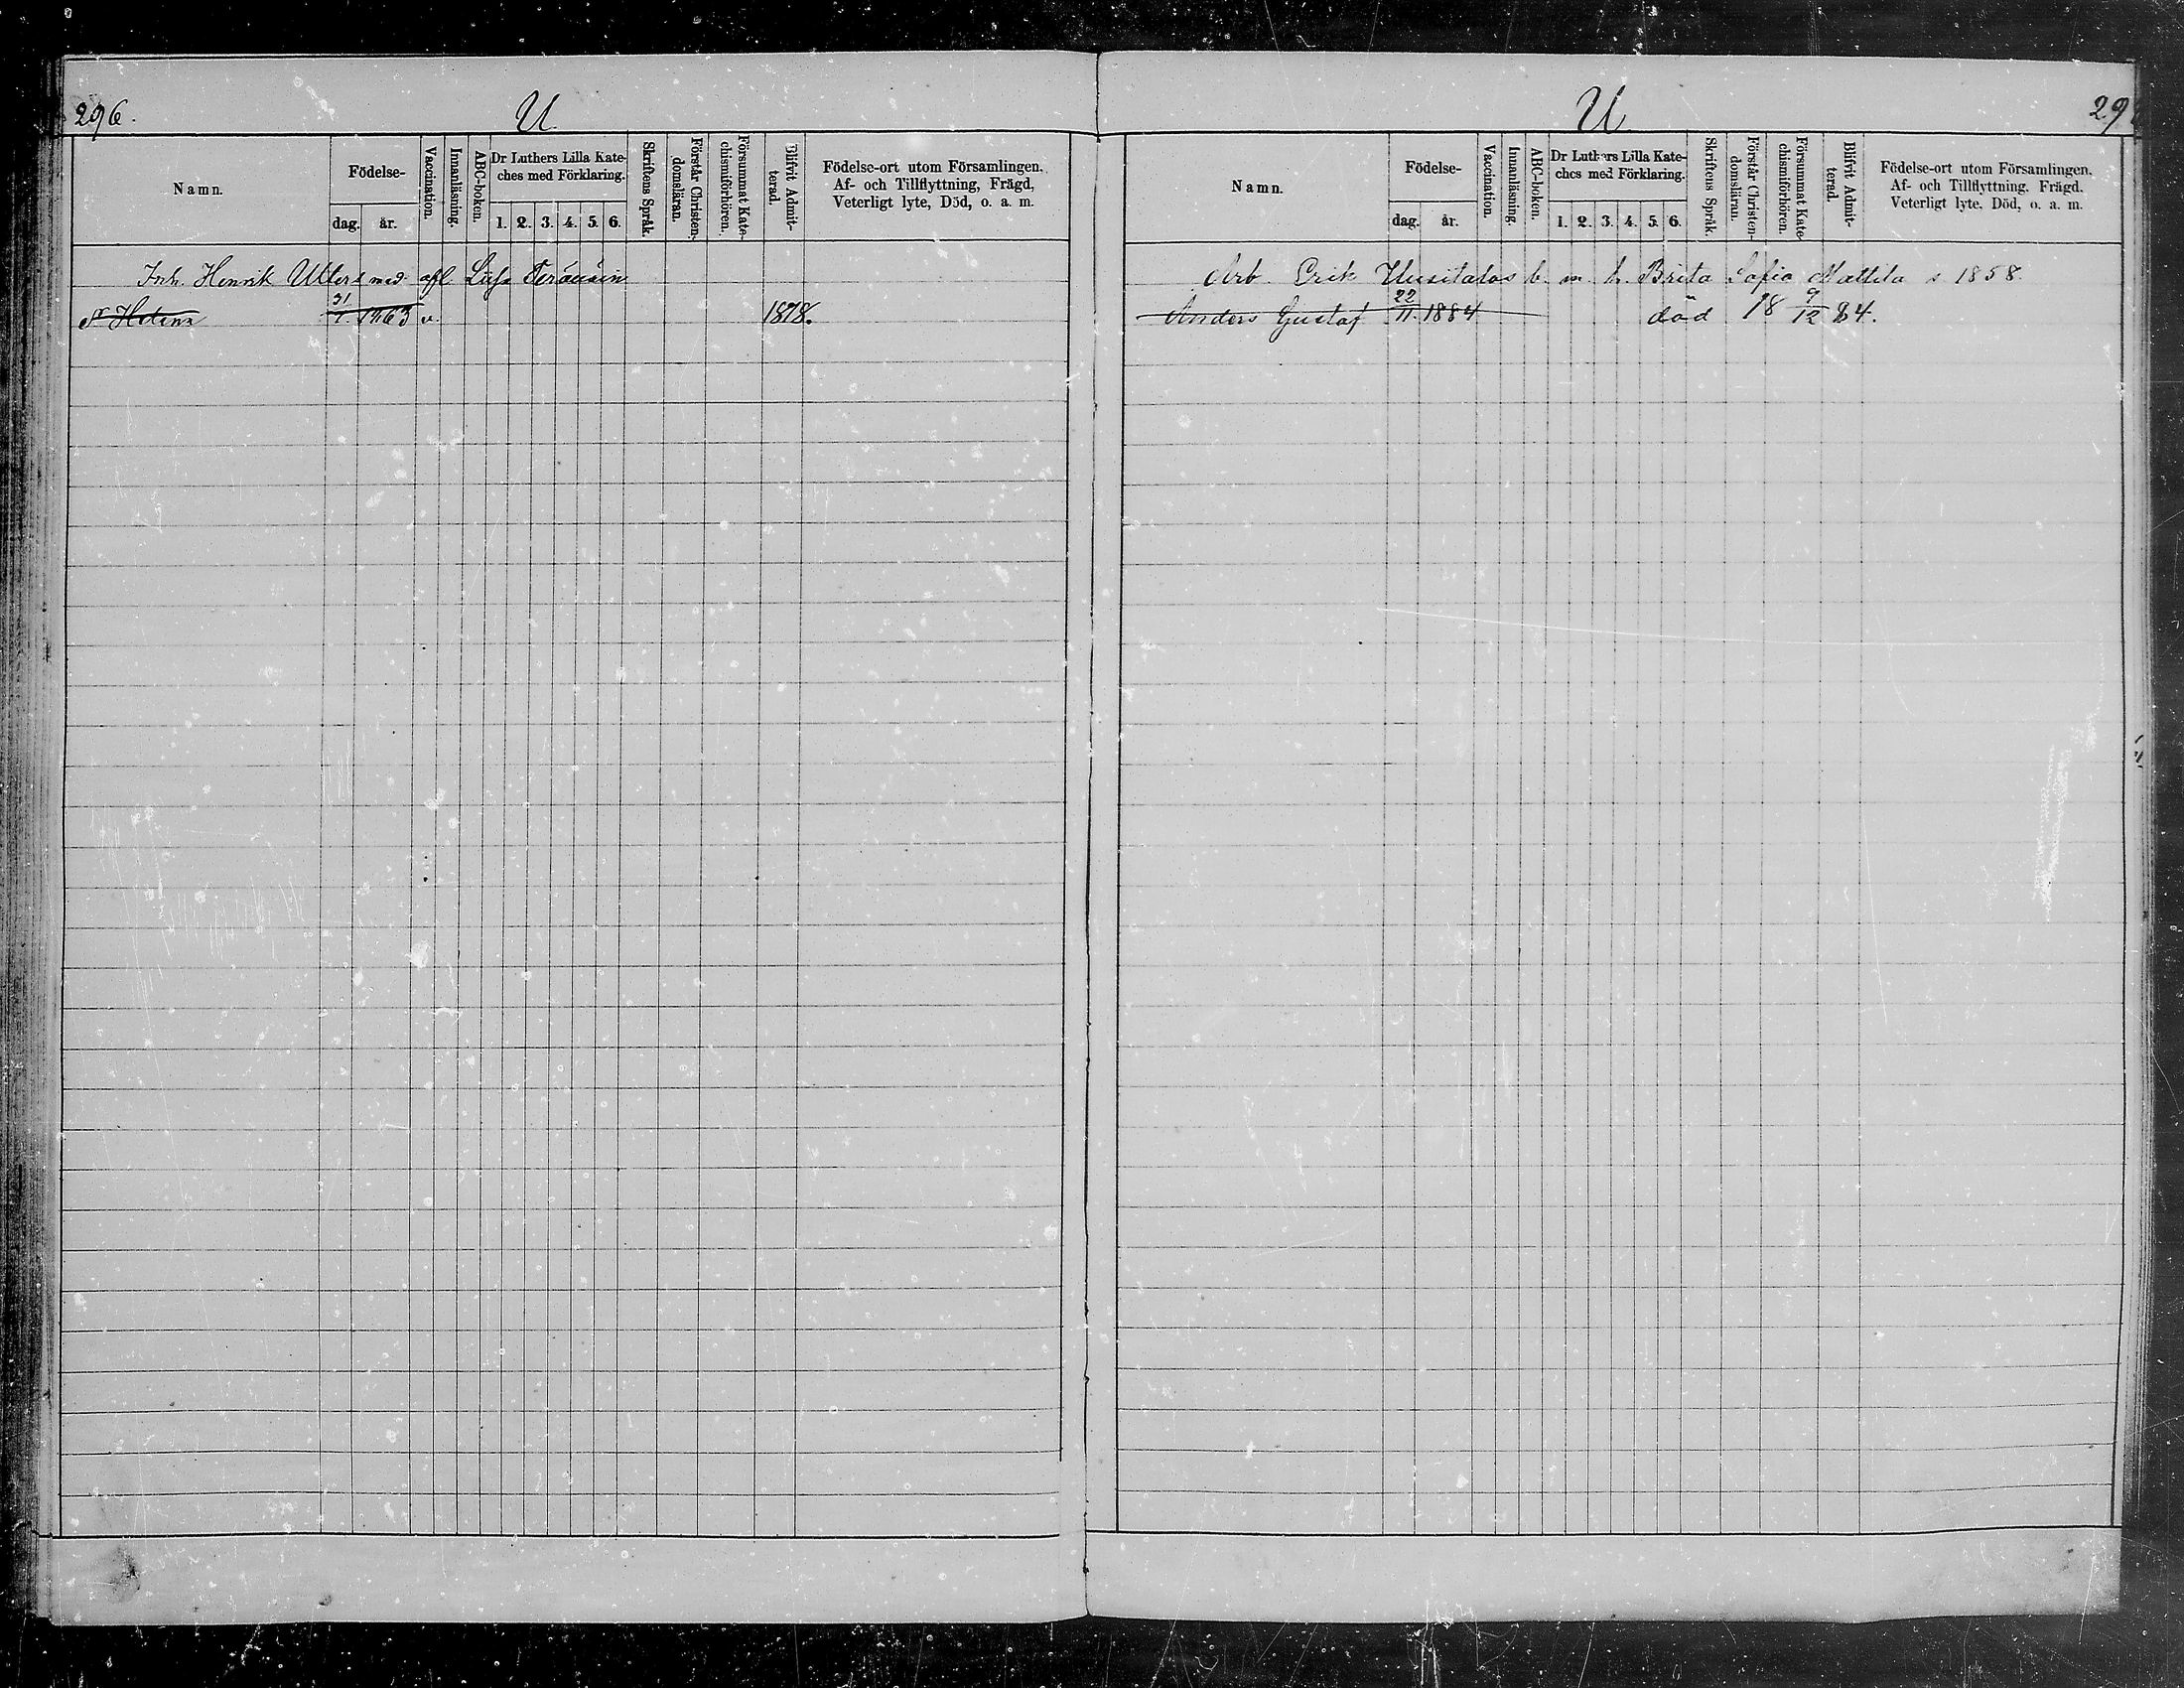 296.
U
Namn.
Födelse-
dag.
år.
Vaccination.
Innanläsning.
ABC-boken.
Dr Luthers Lilla Kate-
ches med Förklaring.
1. 2. 3. 4. 5. 6.
Skriftens Språk.
Förstår Christen-
domsläran.
Försummat Kate-
chismiförhören.
Blifvit Admit-
terad.
Födelse-ort utom Församlingen.
Af- och Tillflyttning, Frägd,
Veterligt lyte, Död, o. a. m.
Inh. Henrik med afl
Helena 31/1. 1863 v. 1878.
U
29
Namn.
Födelse-
dag.
år.
Vaccination.
Innanläsning.
ABC-boken.
Dr Luthers Lilla Kate-
ches med Förklaring.
1. 2. 3. 4. 5. 6.
Skriftens Språk.
Förstår Christen-
domsläran.
Försummat Kate-
chismiförhören.
Blifvit Admit-
terad.
Födelse-ort utom Församlingen.
Af- och Tillflyttning. Frägd.
Veterligt lyte. Död, o. a. m.
Arb. Erik Uusitalos b. m. h. Brita Sofia Mattila s 1858.
Anders Gustaf 22/11. 1884 död 18 9/12 84.